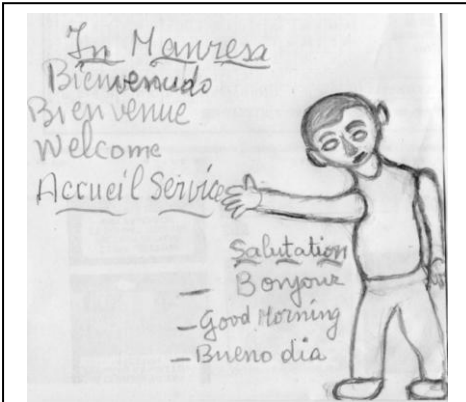 In Manresa
Bienvenudo
Bienvenue
Welcome
Accueil Service
Salutation
– Bonjour
– Good Morning
– Bueno dia